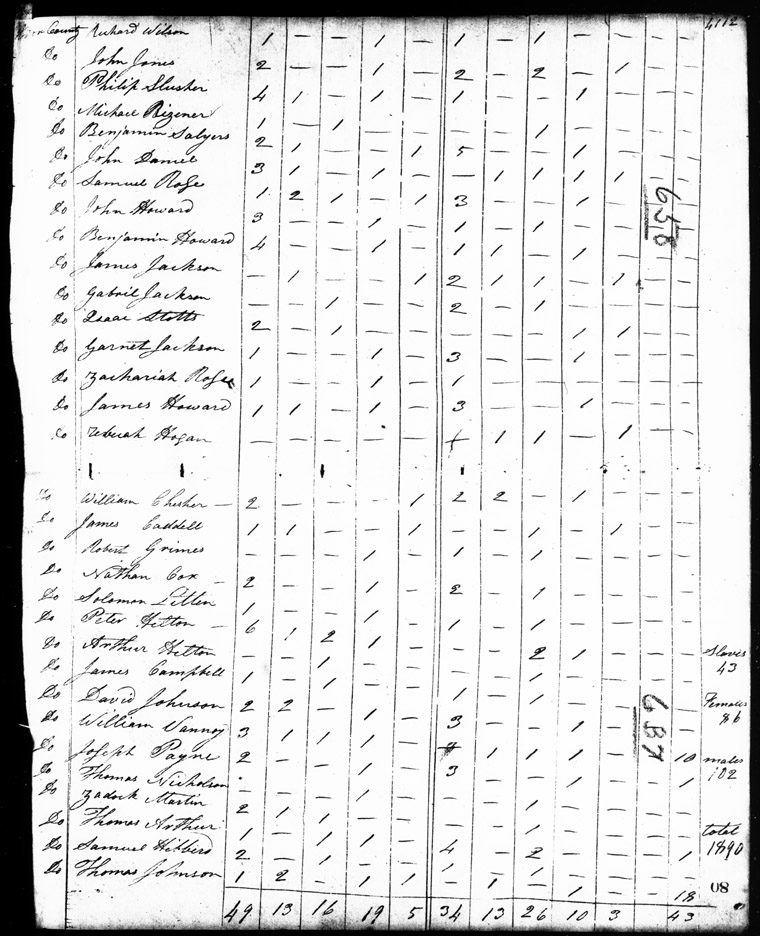 County Richard Wilson 1 — — 1 — 1 — 1 — — — —
Do John Jones 2 — — 1 — 2 — 2 — 1 — —
Do Philip Slusher 4 1 — 1 — 1 — — 1 — — —
Do Michael Bizener 1 — 1 — — — — 1 — — — —
Do Benjamin Salyers 2 1 — — 1 5 — — 1 — — —
Do John Daniel 3 1 — 1 — — 1 1 1 1 — —
Do Samuel Rose 1 2 1 — 1 3 — — 1 — — —
Do John Howard 3 — — 1 — 1 — 1 — — — —
658
Do Benjamin Howard 4 — — 1 — 1 1 — 1 — — —
Do James Jackson — 1 — — 1 2 1 1 — 1 — —
Do Gabril Jackson — — 1 — — 2 — 1 — — — —
Do Isaac Stotts 2 — — 1 — — — — 1 1 — —
Do Garnet Jackson 1 — — 1 — 3 — — 1 — — —
Do Zachariah Rose 1 — — 1 — 1 — — — — — —
Do James Howard 1 1 — 1 — 3 — — 1 — — —
Do Hogan — — — — — 1 1 — 1 — —
Do William Chisher 2 — — — 1 2 2 — 1 — — —
Do James Caddell 1 1 — — 1 — — 1 — 1 — —
Do Robert Grimes — — — 1 — 1 — 1 — — — —
Do Nathan Cox 2 — — 1 — 2 — 1 — — — —
Do Solomon Litten 1 — — 1 —
Do Peter Hilton 6 1 2 1 — 1 — 1 — — — —
Do Arthur Hilton — — 1 — — — — 2 1 — — —
Do James Campbell 1 — 1 — — 1 — 1 — — — —
Do David Johnson 2 2 — 1 — 3 — — 1 — — —
Do William Vannoy 3 1 1 1 — 1 1 1 — — 10
Do Joseph Payne 2 — — 1 — 3 — — 1 — — 1
Do Thomas Nicholson
Do Zadock Martin 2 1 1
Do Thomas Arthur 1 — 1 1 —
Do Samuel Hibbird 2 — 1 — — 4 — 2 — — — 1
Do Thomas Johnson 1 2 — 1 1 — 1 — 1 — — 18
49 13 16 19 5 34 13 26 10 3 43
687
Slaves
43
Females
86
males
102
total
1890
80